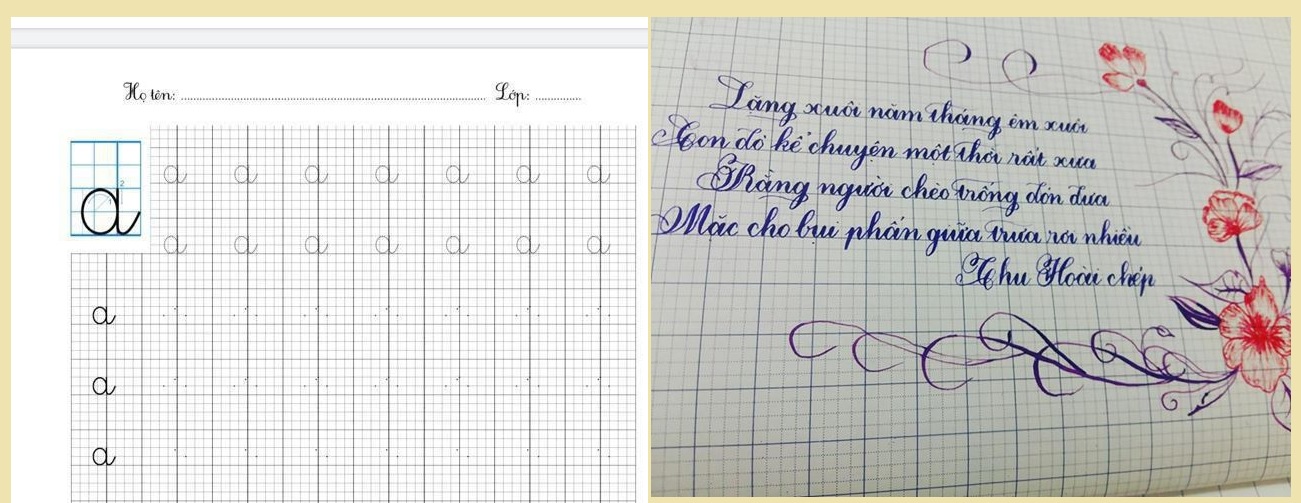 Họ tên: ........ Lớp: ........
a
a a a a a a a
a a a a a a a
a
a
a
Lặng xuôi năm tháng êm xuôi
Con đò kể chuyện một thời rất xưa
Rằng người chèo trống đón đưa
Mặc cho bụi phấn giữa trưa rơi nhiều
Thu Hoài chép